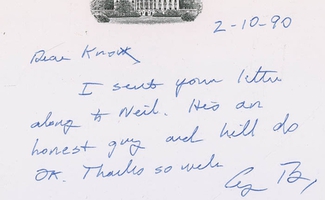 2-10-90
Dear Knox
I sent your letter
along to Neil. He's an
honest guy and will do
OK. Thanks so much